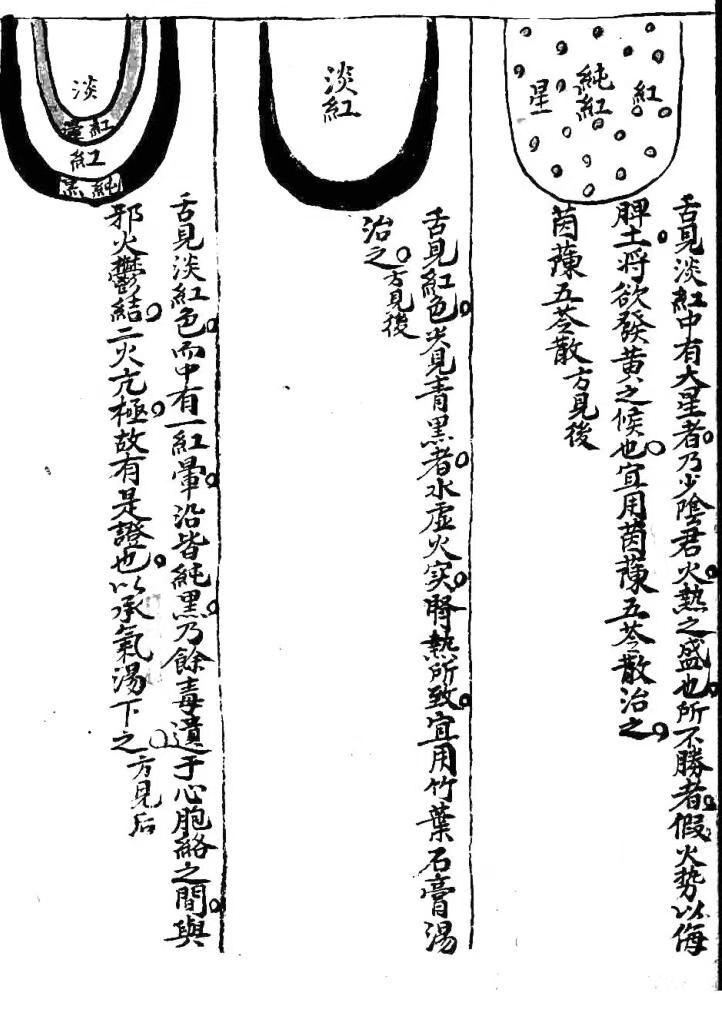 紅
純紅
星
舌見淡紅中有大星者乃少陰君火熱之盛也所不勝者假火势以侮
脾土将欲發黄之候也宜用茵蔯五苓散治之
茵蔯五苓散方見後
淡紅
舌見紅色尖見青黑者水虚火实腎热所致宜用竹葉石膏湯
治之方見後
淡
紅暈
紅
純黑
舌見淡紅色而中有一紅暈沿皆純黑乃餘毒遺于心胞絡之間與
邪火鬱結二火亢極故有是證也以承氣湯下之方見后